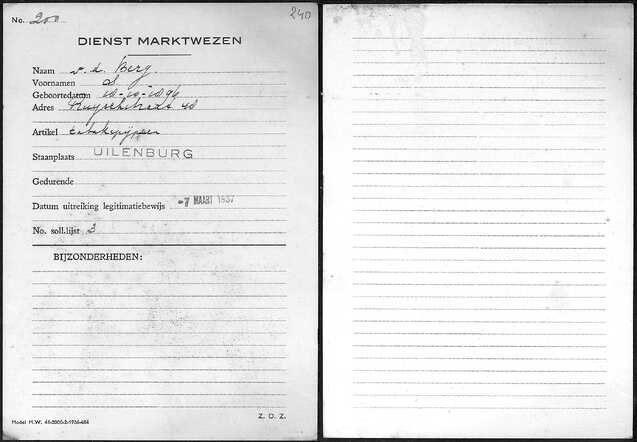 No. 200
240
DIENST MARKTWEZEN
Naam v. d. Berg.
Voornamen S.
Geboortedatum 10-10-1894
Adres Ruyschstraat 48
Artikel tabakspijpen
Staanplaats UILENBURG
Gedurende
Datum uitreiking legitimatiebewijs -7 MAART 1937
No. soll.lijst 3
BIJZONDERHEDEN:
Z. O. Z.
Model M.W.